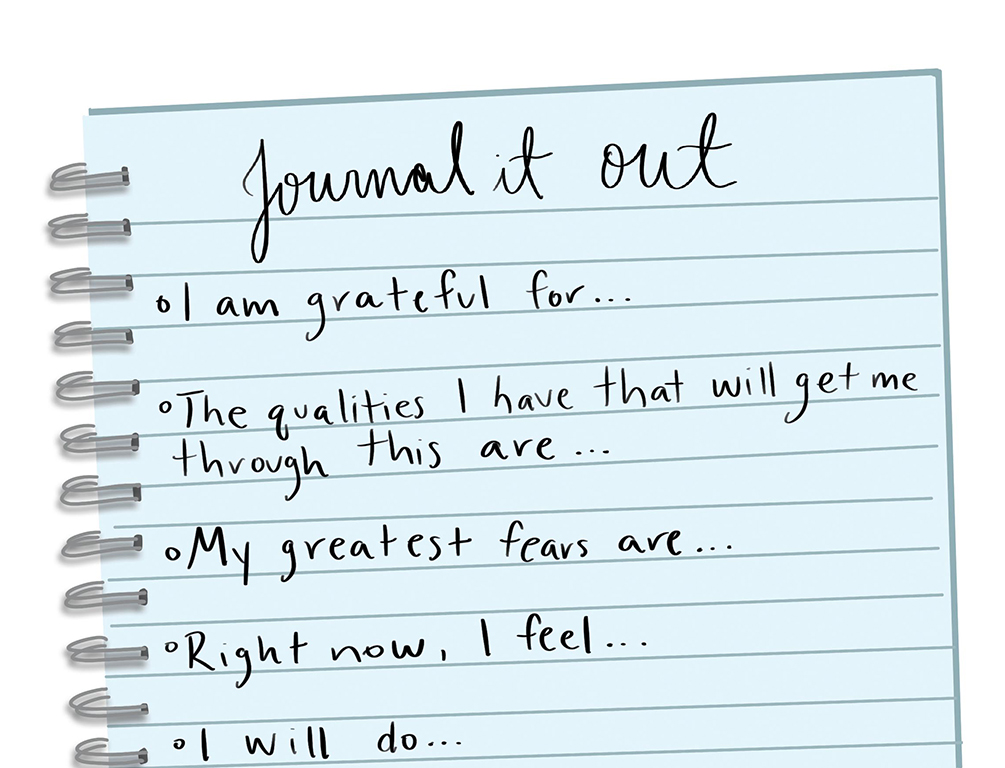 Journal it out
°I am grateful for...
°The qualities I have that will get me
through this are...
°My greatest fears are...
°Right now, I feel...
°I will do...